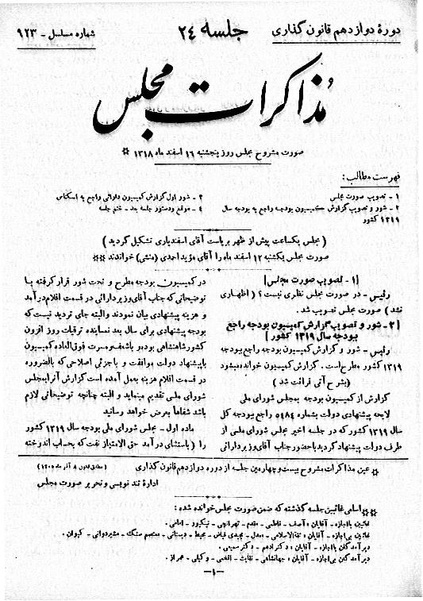 دورهٔ دوازدهم قانون گذاری
جلسه ۲۴
شماره مسلسل - ۹۲۳
مذاکرات مجلس
صورت مشروح مجلس روز پنجشنبه ۱۶ اسفند ماه ۱۳۱۸
فهرست مطالب:
۱ - تصویب صورت مجلس
۲ - شور و تصویب گزارش کمیسیون بودجه راجع به بودجه سال ۱۳۱۹ کشور
۳ - شور اول گزارش کمیسیون دارائی راجع به اسکناس
۴ - موقع و دستور جلسه بعد - ختم جلسه
(مجلس یکساعت پیش از ظهر بریاست آقای اسفندیاری تشکیل گردید)
صورت مجلس یکشنبه ۱۲ اسفند ماه را آقای مؤید احمدی (منشی) خواندند
[۱ - تصویب صورت مجلس]
رئیس - در صورت مجلس نظری نیست؟ (اظهاری
نشد) صورت مجلس تصویب شد.
[۲ - شور و تصویب گزارش کمیسیون بودجه راجع
ببودجه سال ۱۳۱۹ کشور]
رئیس - شور و گزارش کمیسیون بودجه راجع ببودجه
۱۳۱۹ کشور مطرح است. گزارش کمیسیون خوانده میشود
(بشرح آتی قرائت شد)
گزارش از کمیسیون بودجه به مجلس شورای ملی
لایحه پیشنهادی دولت بشماره ۵۱۴۸۴ راجع ببودجه کل
سال ۱۳۱۹ کشور که در جلسه اخیر مجلس شورای ملی از
طرف دولت پیشنهاد گردید با حضور جناب آقای وزیر دارائی
در کمیسیون بودجه مطرح و تحت شور قرار گرفته با
توضیحاتی که جناب آقای وزیر دارائی در قسمت اقلام درآمد
و هزینه پیشنهادی بیان نمودند والبته جای تردید نیست که
بودجه پیشنهادی برای سال بعد نماینده ترقیات روز افزون
کشور شاهنشاهی بوده و باشعف و مسرت فوق العاده کمیسیون
با پیشنهاد دولت موافقت و با جزئی اصلاحی که بالضروره
در قسمت اقلام هزینه بعمل آمده است گزارش آنرا بمجلس
شورای ملی تقدیم مینماید و البته چنانچه توضیحاتی لازم
باشد شفاهاً بعرض خواهد رسانید
ماده اول - مجلس شورای ملی درآمد سال ۱۳۱۹ کشور
را (باستثنای درآمد حق الامتیاز نفت که بحساب اندوخته
عین مذاکرات مشروح بیست و چهارمین جلسه از دوره دوازدهم قانون گذاری
اداره تند نویسی و تحریر صورت مجلس
اسامی غائبین جلسه گذشته که ضمن صورت مجلس خوانده شده:
- ۱ -